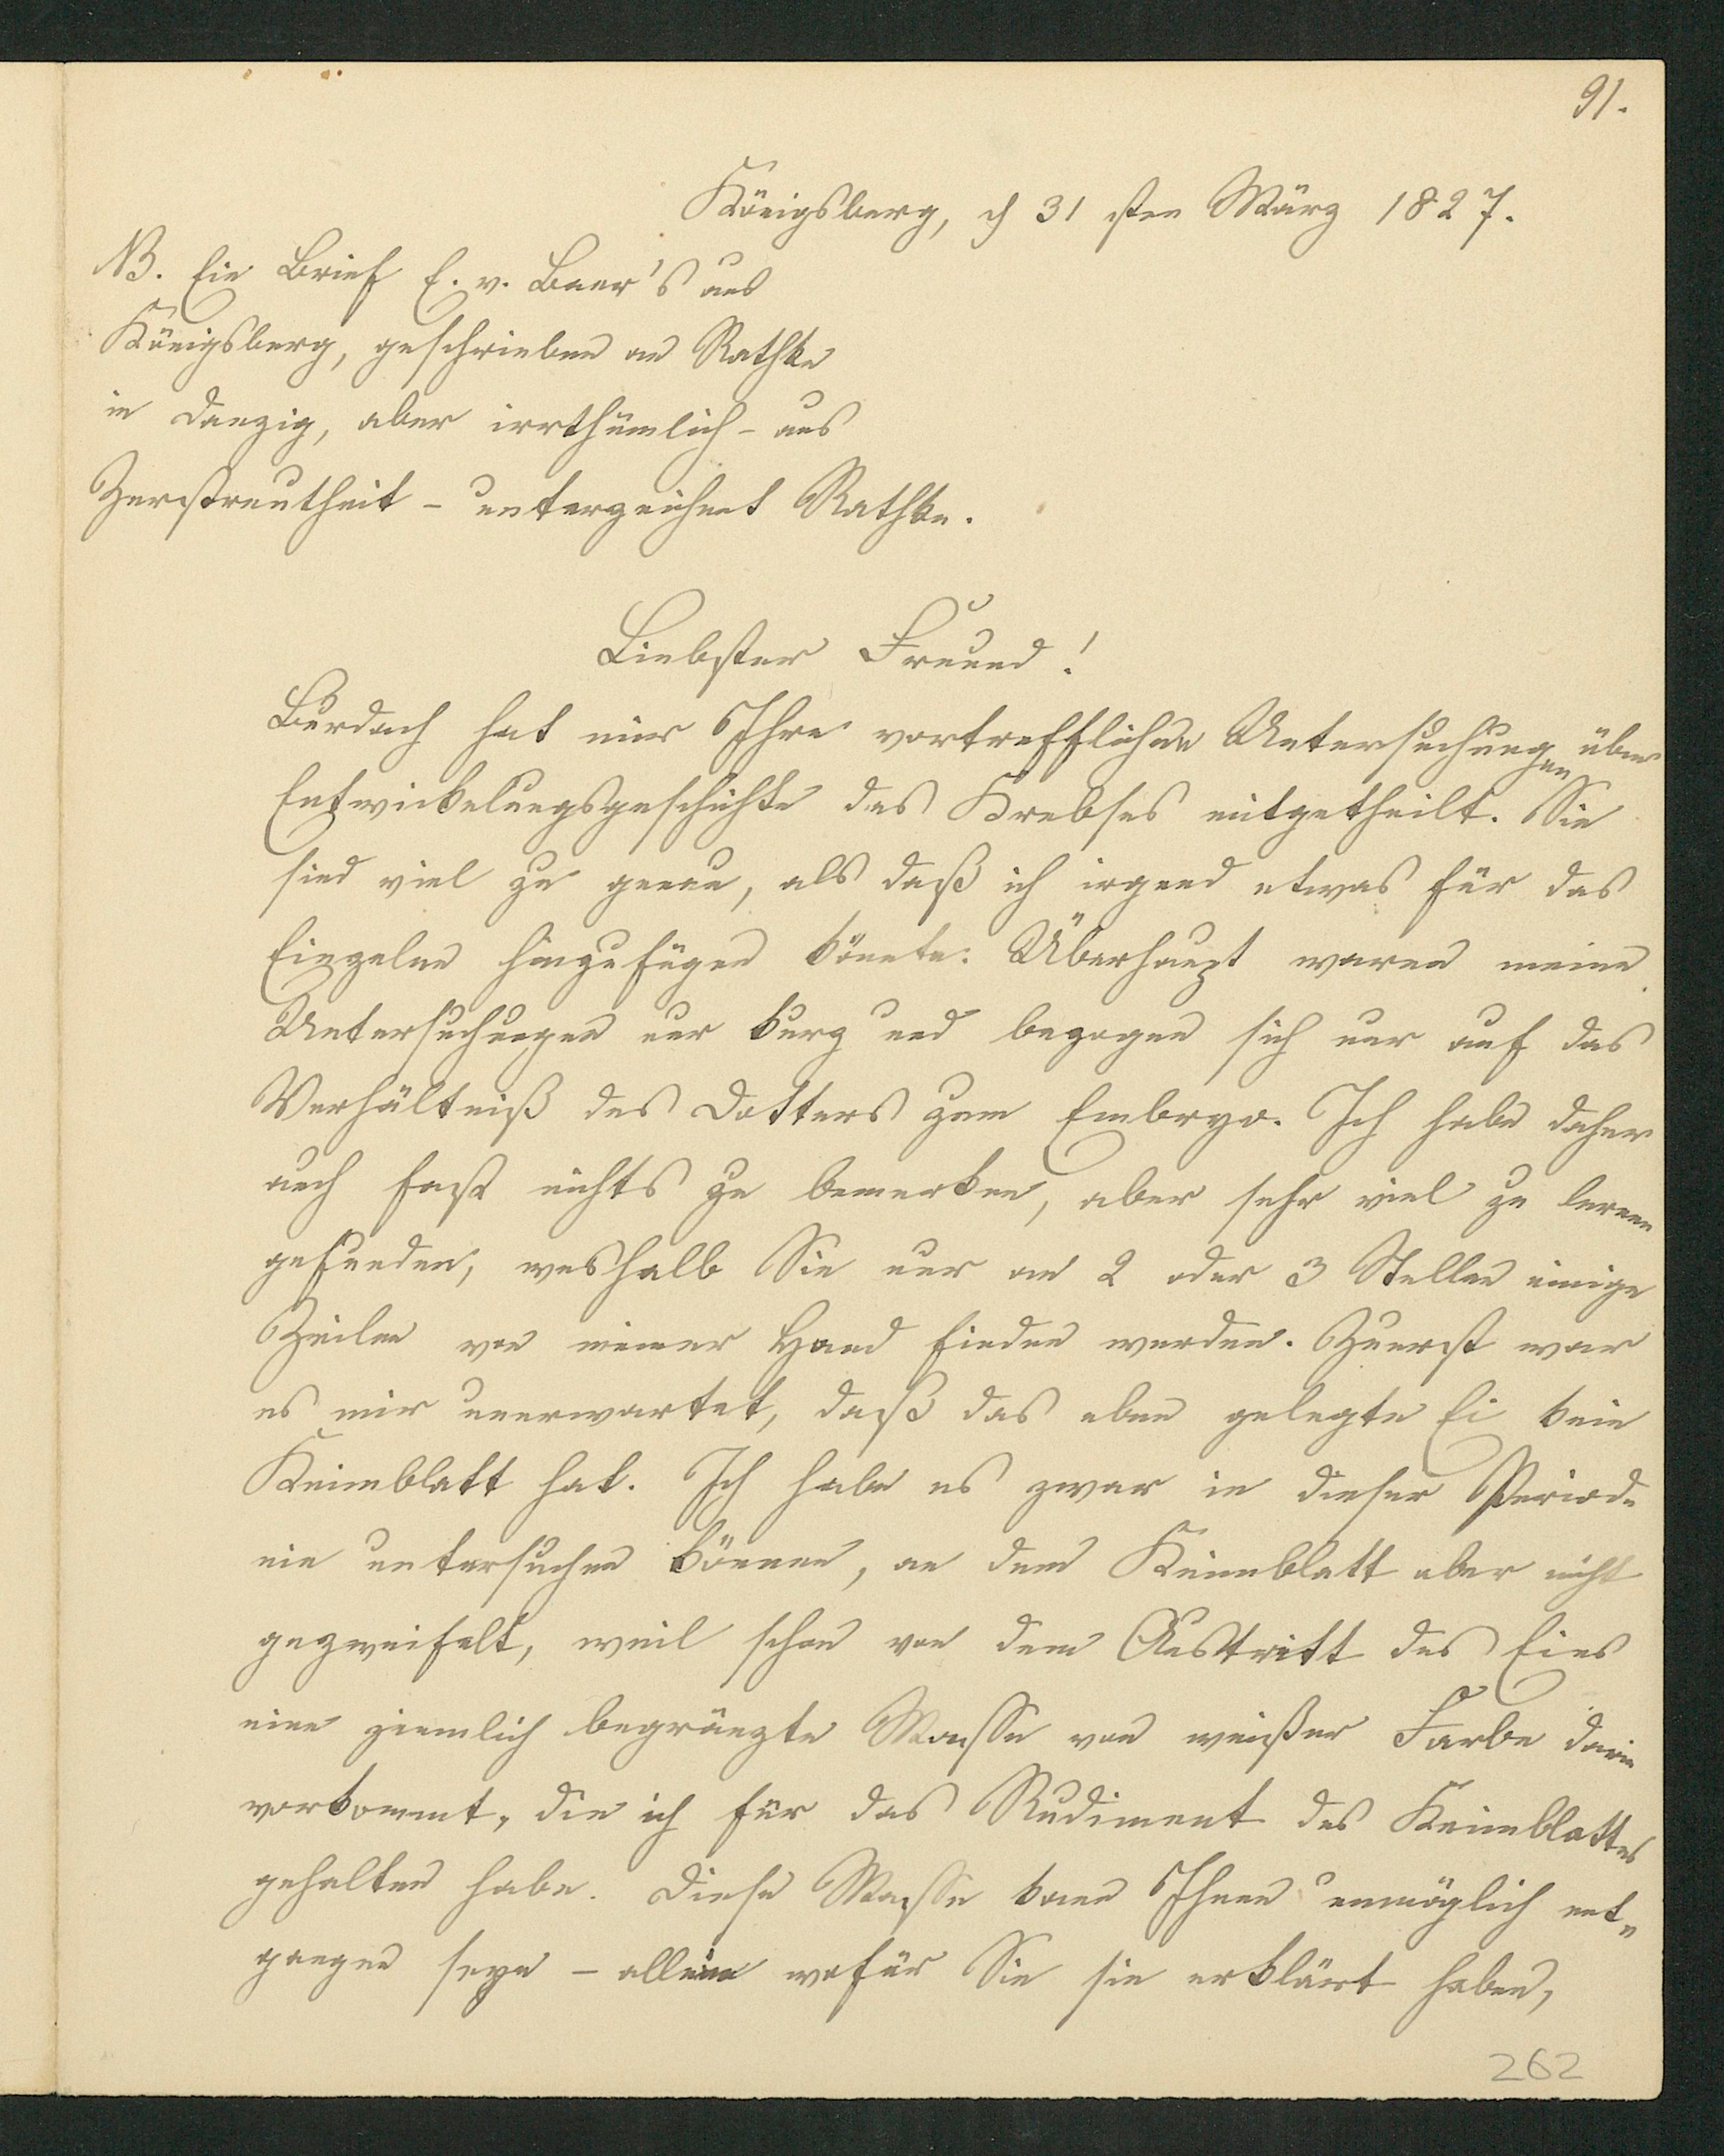 91.
Königsberg, d 31 sten März 1827.
NB. Ein Brief E. v. Baer's aus
Königsberg, geschrieben an Rathke
in Danzig, aber irrthümlich - aus
Zerstreutheit - unterzeichnet Rathke.
Liebster Freund!
Burdach hat mir Ihre vortrefflichen Untersuchungen über
Entwickelungsgeschichte des Krebses mitgetheilt. Sie
sind viel zu genau, als daß ich irgend etwas für das
Einzelne hinzufügen könnte. Überhaupt waren meine
Untersuchungen nur kurz und bezogen sich nur auf das
Verhältniß des Dotters zum Embryo. Ich habe daher
auch fast nichts zu bemerken, aber sehr viel zu lernen
gefunden, weshalb Sie nur an 2 oder 3 Stellen einige
Zeilen von meiner Hand finden werden. Zuerst war
es mir unerwartet, daß das eben gelegte Ei kein
Keimblatt hat. Ich habe es zwar in dieser Periode
nie untersuchen können, an dem Keimblatt aber nicht
gezweifelt, weil schon vor dem Austritt des Eies
eine ziemlich begränzte Masse von weißer Farbe darin
vorkommt, die ich für das Rudiment des Keimblattes
gehalten habe. Diese Masse kann Ihnen unmöglich ent-
gangen seyn - allein wofür Sie sie erklärt haben,
262